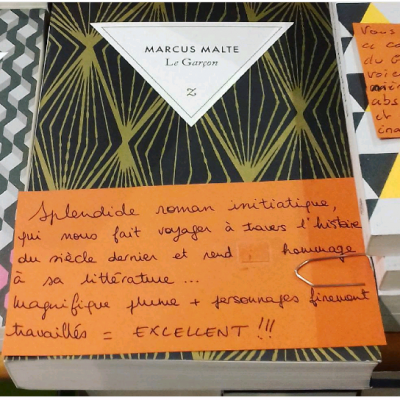 MARCUS MALTE
Le Garçon
Z
Splendide roman initiatique,
qui nous fait voyager à travers l'histoire
du siècle dernier et rend hommage
à sa littérature ...
Magnifique plume + personnages finement
travaillés = EXCELLENT !!!
Vous